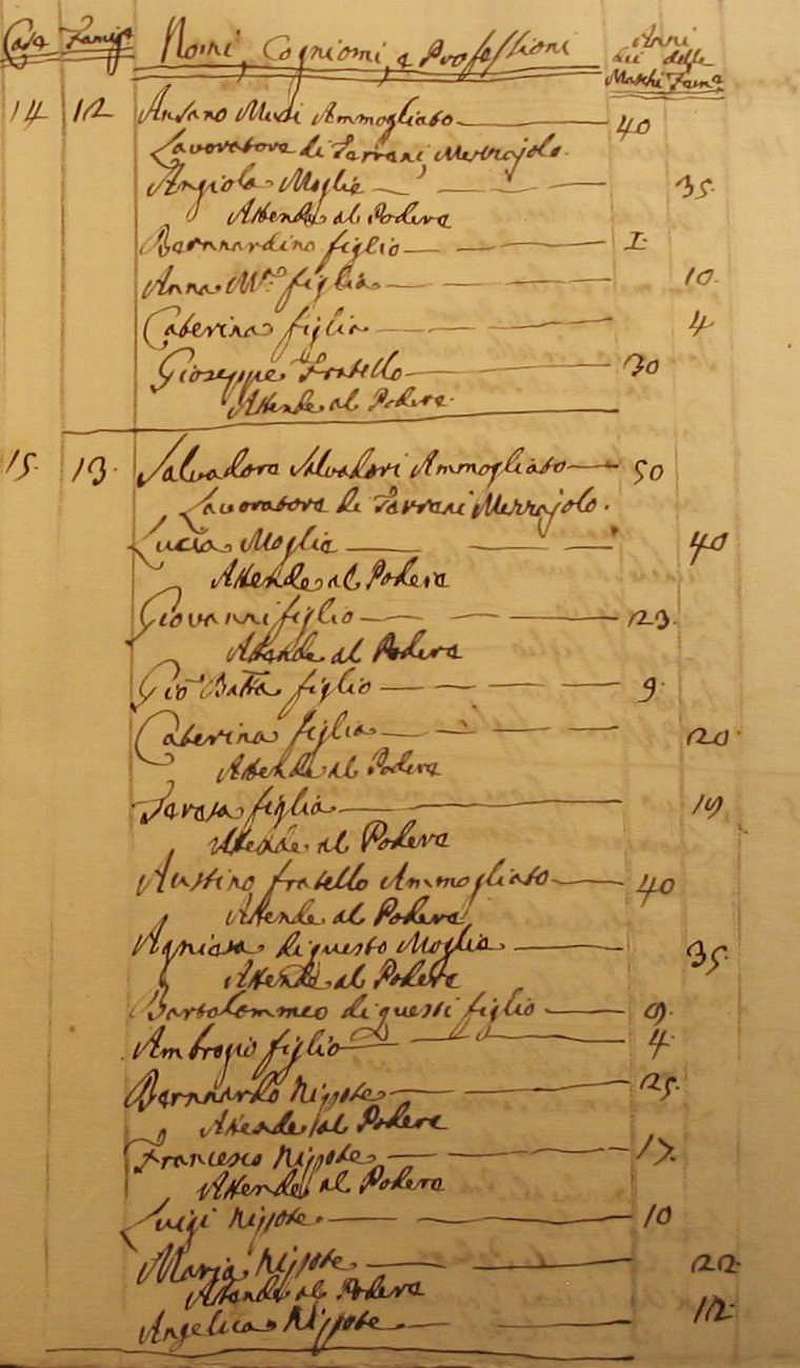 Casa Famigᵃ Nomi, Cogniomi, e Professioni Anni
dei delle
Maschi Femᵉ
14 12 Ansano Ammogliato 40
Lavoratore di Terreni Mezzajolo.
Angiola Moglie 35.
Attende al Podere
Bernnardino figlio 1
Anna Mᵃ figlia 10.
Caterina figlia 4
Gioseppe Fratello 30
Attende al Podere.
15. 13. Salvadore Salvadori Ammogliato 50
Lavoratore di Terreni Mezzajolo.
Lucia Moglie 40
Attende al Podere
Giovanni figlio 23.
Attende al Podere
Gio Batta figlio 9.
Caterina figlia 20
Attende al Podere
Teresa figlia 19
Attende al Podere
Austino fratello Ammogliato 40
Attende al Podere
Agniesa di questo Moglie 35.
Attende al Podere
Bartolommeo di questi figlio 9.
Ambrogio figlio 4
Bernnardo Nippote 25.
Attende al Podere
Francesco Nippote 17.
Attende al Podere
Luigi Nippote 10
Maria Nippote 22
Attende al Podere
Angelica Nippote 12